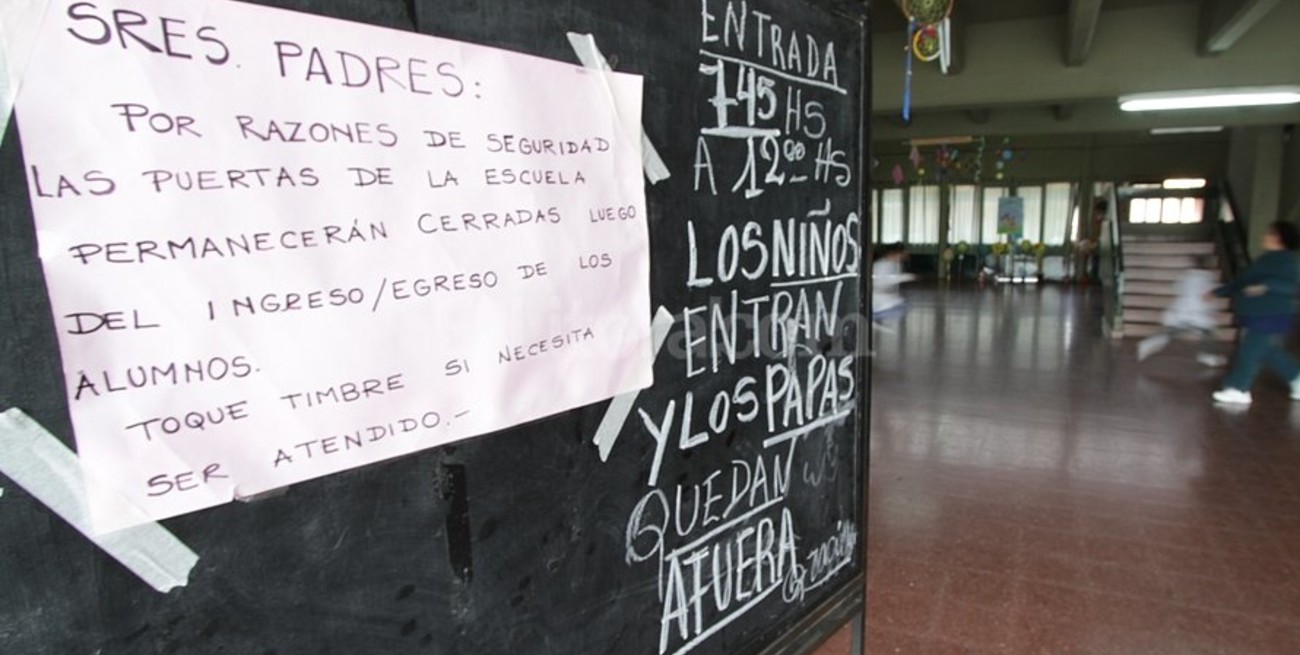 SRES. PADRES:
POR RAZONES DE SEGURIDAD
LAS PUERTAS DE LA ESCUELA
PERMANECERÁN CERRADAS LUEGO
DEL INGRESO/EGRESO DE LOS
ALUMNOS.
TOQUE TIMBRE SI NECESITA
SER ATENDIDO.-
ENTRADA
745 HS
A 1200 HS
LOS NIÑOS
ENTRAN
Y LOS PAPAS
QUEDAN
AFUERA